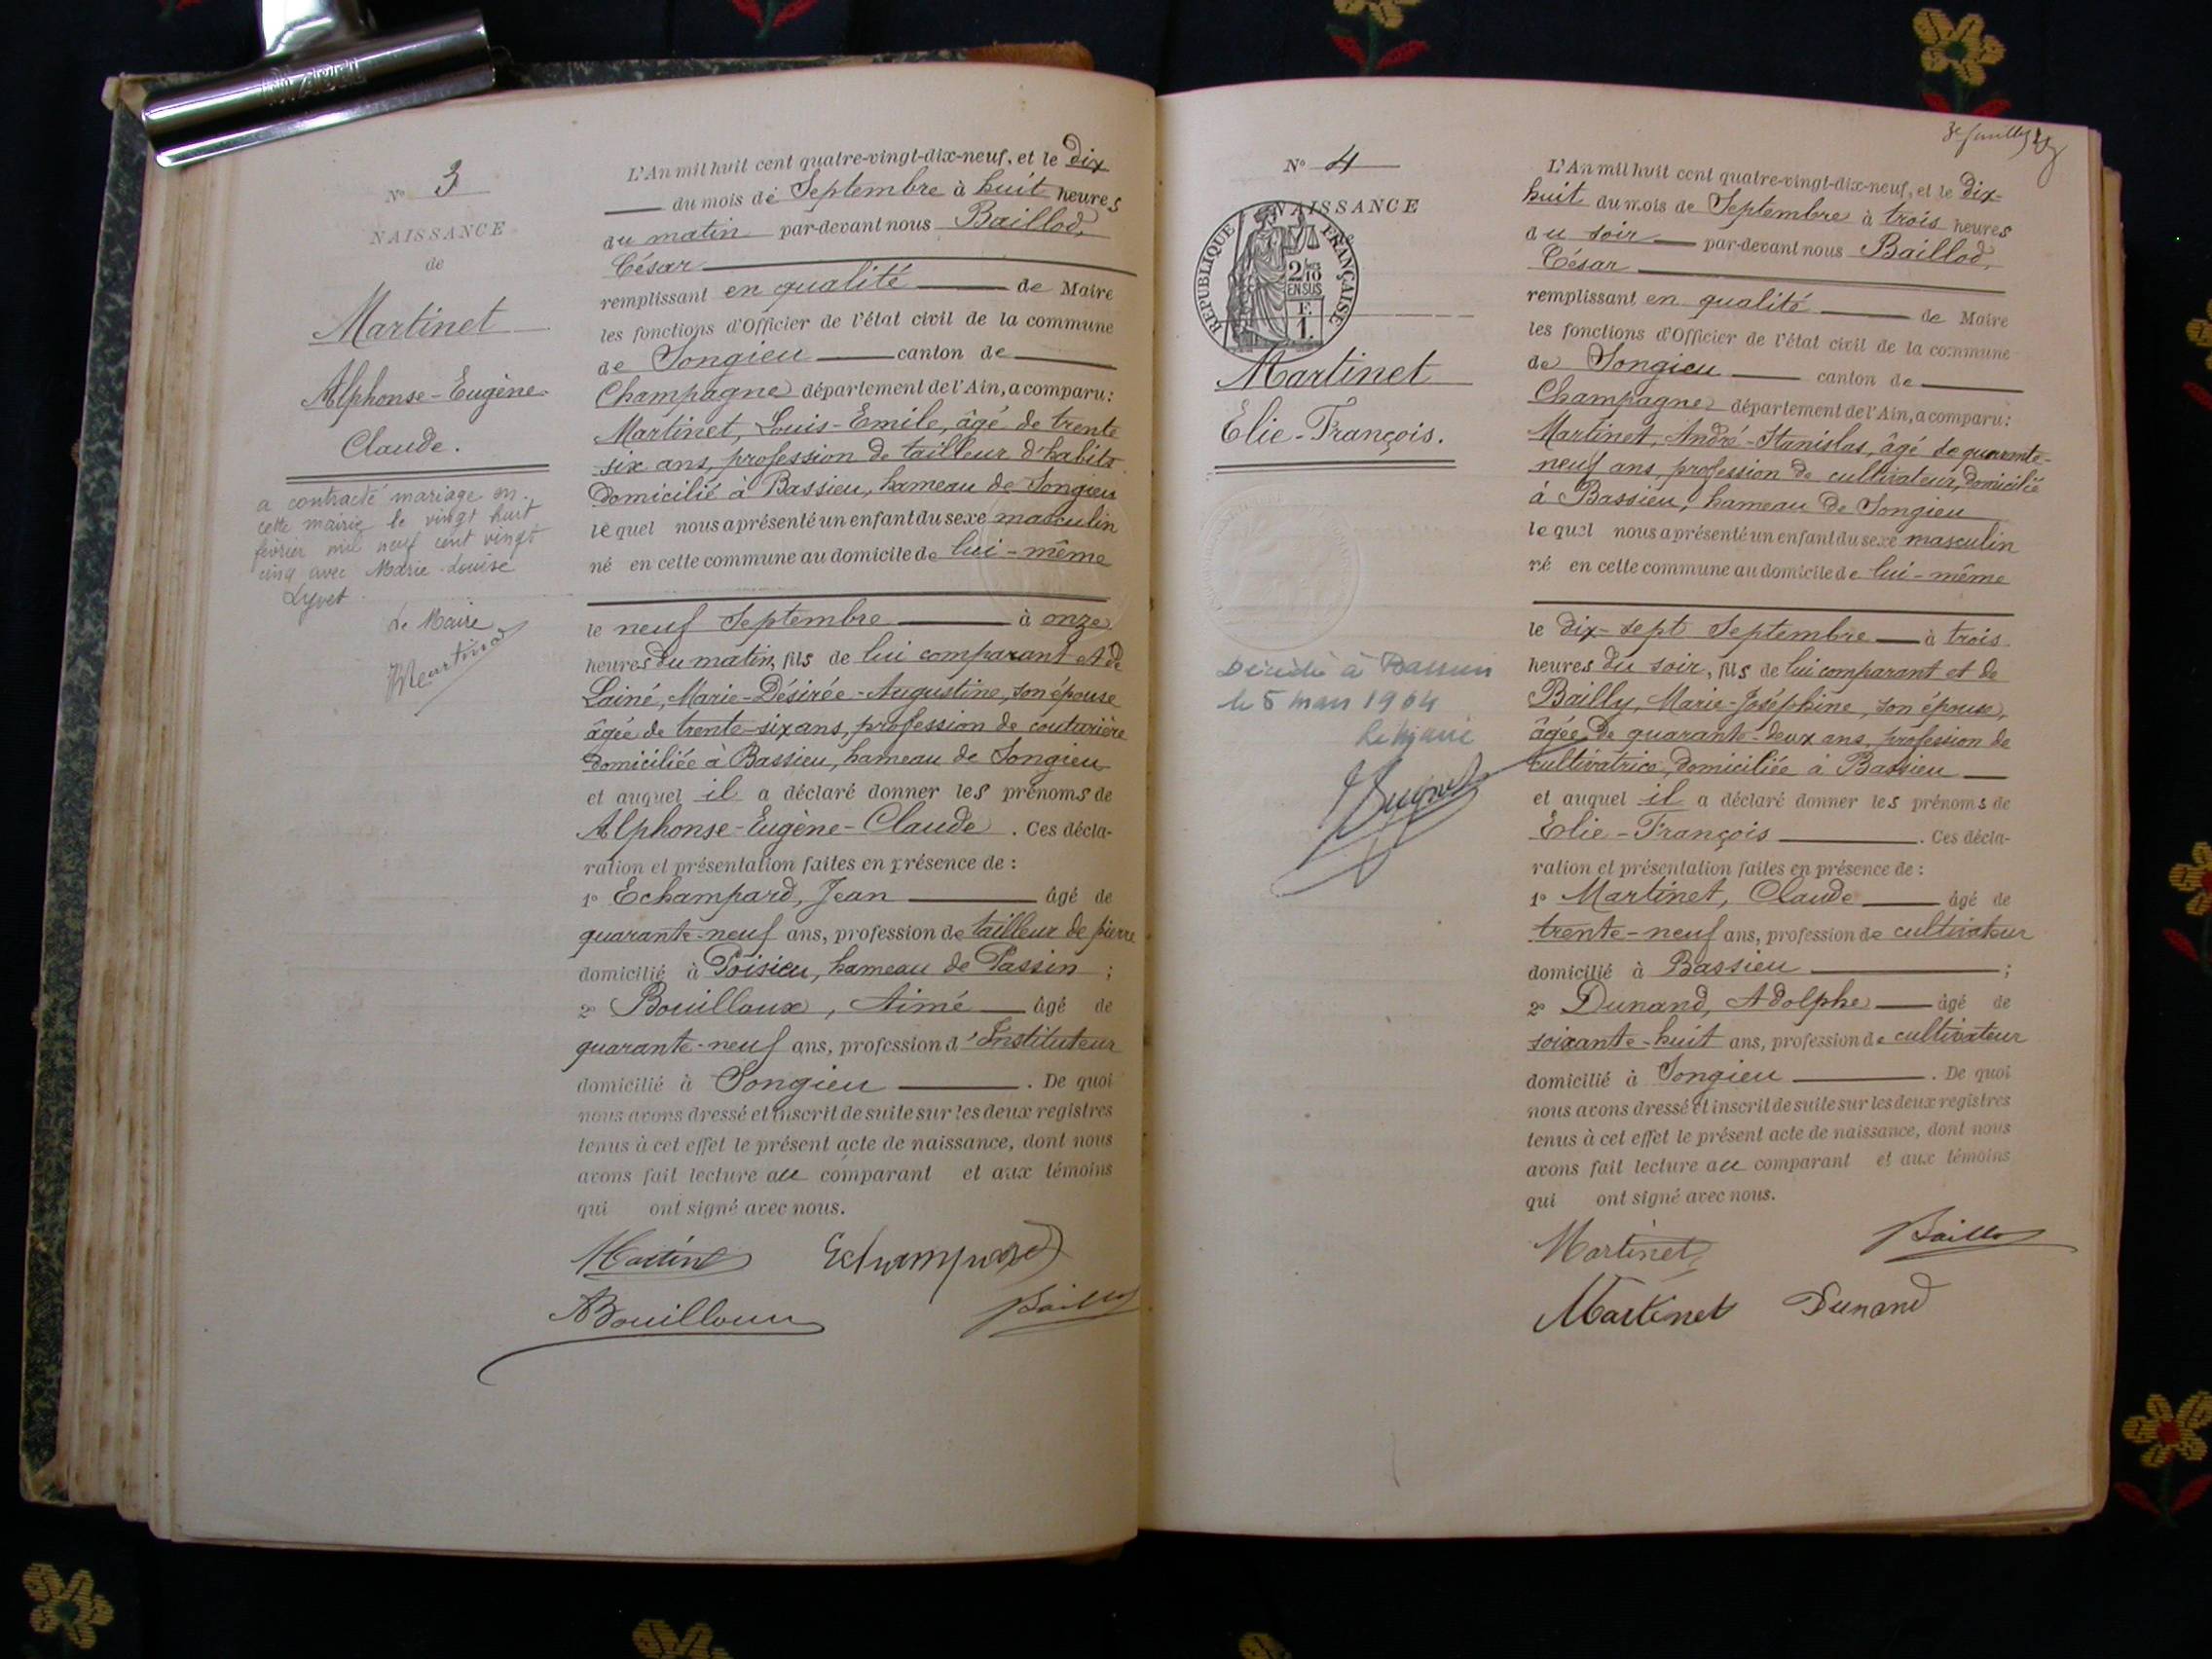 N° 3
NAISSANCE
de
Martinet
Alphonse-Eugène
Claude.
a contracté mariage en
cette mairie le vingt huit
février mil neuf cent vingt
cinq avec Marie Louise
Lyvet
Le Maire
Martinod
L'An mil huit cent quatre-vingt-dix-neuf, et le dix
du mois de Septembre à huit heures
du matin par-devant nous Baillod,
César
remplissant en qualité de Maire
les fonctions d'Officier de l'état civil de la commune
de Songieu canton de
Champagne département de l'Ain, a comparu:
Martinet, Louis-Emile, âgé de trente
six ans, profession de tailleur d'habits
domicilié à Bassieu, hameau de Songieu
lequel nous a présenté un enfant du sexe masculin
né en cette commune au domicile de lui-même
le neuf Septembre à onze
heures du matin, fils de lui comparant et de
Lainé, Marie-Désirée-Augustine, son épouse
âgée de trente-six ans, profession de couturière
domiciliée à Bassieu, hameau de Songieu
et auquel il a déclaré donner les prénoms de
Alphonse-Eugène-Claude. Ces décla-
ration et présentation faites en présence de :
1° Echampard, Jean âgé de
quarante-neuf ans, profession de tailleur de pierre
domicilié à Poisieu, hameau de Passin ;
2° Bouilloux, Aimé âgé de
quarante-neuf ans, profession d'Instituteur
domicilié à Songieu. De quoi
nous avons dressé et inscrit de suite sur les deux registres
tenus à cet effet le présent acte de naissance, dont nous
avons fait lecture au comparant et aux témoins
qui ont signé avec nous.
Martinet Echampard
ABouilloux Baillod
3e feuillet
N° 4
NAISSANCE
de
REPUBLIQUE FRANÇAISE
2/10
EN SUS
F.
1.
Martinet
Elie-François.
Décédé à Bassieu
le 5 mars 1904
Le Maire
L'An mil huit cent quatre-vingt-dix-neuf, et le dix-
huit du mois de Septembre à trois heures
du soir par-devant nous Baillod,
César
remplissant en qualité de Maire
les fonctions d'Officier de l'état civil de la commune
de Songieu canton de
Champagne département de l'Ain, a comparu:
Martinet, André-Stanislas, âgé de quarante-
neuf ans, profession de cultivateur, domicilié
à Bassieu, hameau de Songieu
lequel nous a présenté un enfant du sexe masculin
né en cette commune au domicile de lui-même
le dix-sept Septembre à trois
heures du soir, fils de lui comparant et de
Bailly, Marie-Joséphine, son épouse,
âgée de quarante-deux ans, profession de
cultivatrice, domiciliée à Bassieu
et auquel il a déclaré donner les prénoms de
Elie-François. Ces décla-
ration et présentation faites en présence de :
1° Martinet, Claude âgé de
trente-neuf ans, profession de cultivateur
domicilié à Bassieu ;
2° Dunand, Adolphe âgé de
soixante-huit ans, profession de cultivateur
domicilié à Songieu. De quoi
nous avons dressé et inscrit de suite sur les deux registres
tenus à cet effet le présent acte de naissance, dont nous
avons fait lecture au comparant et aux témoins
qui ont signé avec nous.
Martinet Baillod
Martinet Dunand